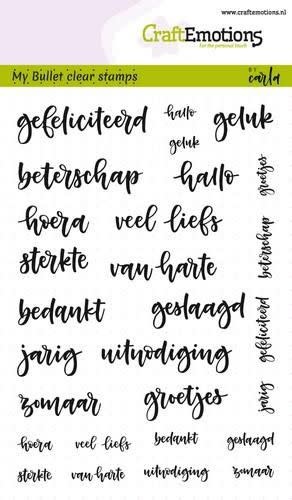 www.craftemotions.nl
CraftEmotions
For the personal touch
My Bullet clear stamps
BY carla
gefeliciteerd hallo geluk
geluk
beterschap hallo groetjes
hoera veel liefs
beterschap
sterkte van harte
bedankt geslaagd
gefeliciteerd
jarig uitnodiging
zomaar groetjes jarig
hoera veel liefs bedankt geslaagd
sterkte van harte uitnodiging zomaar